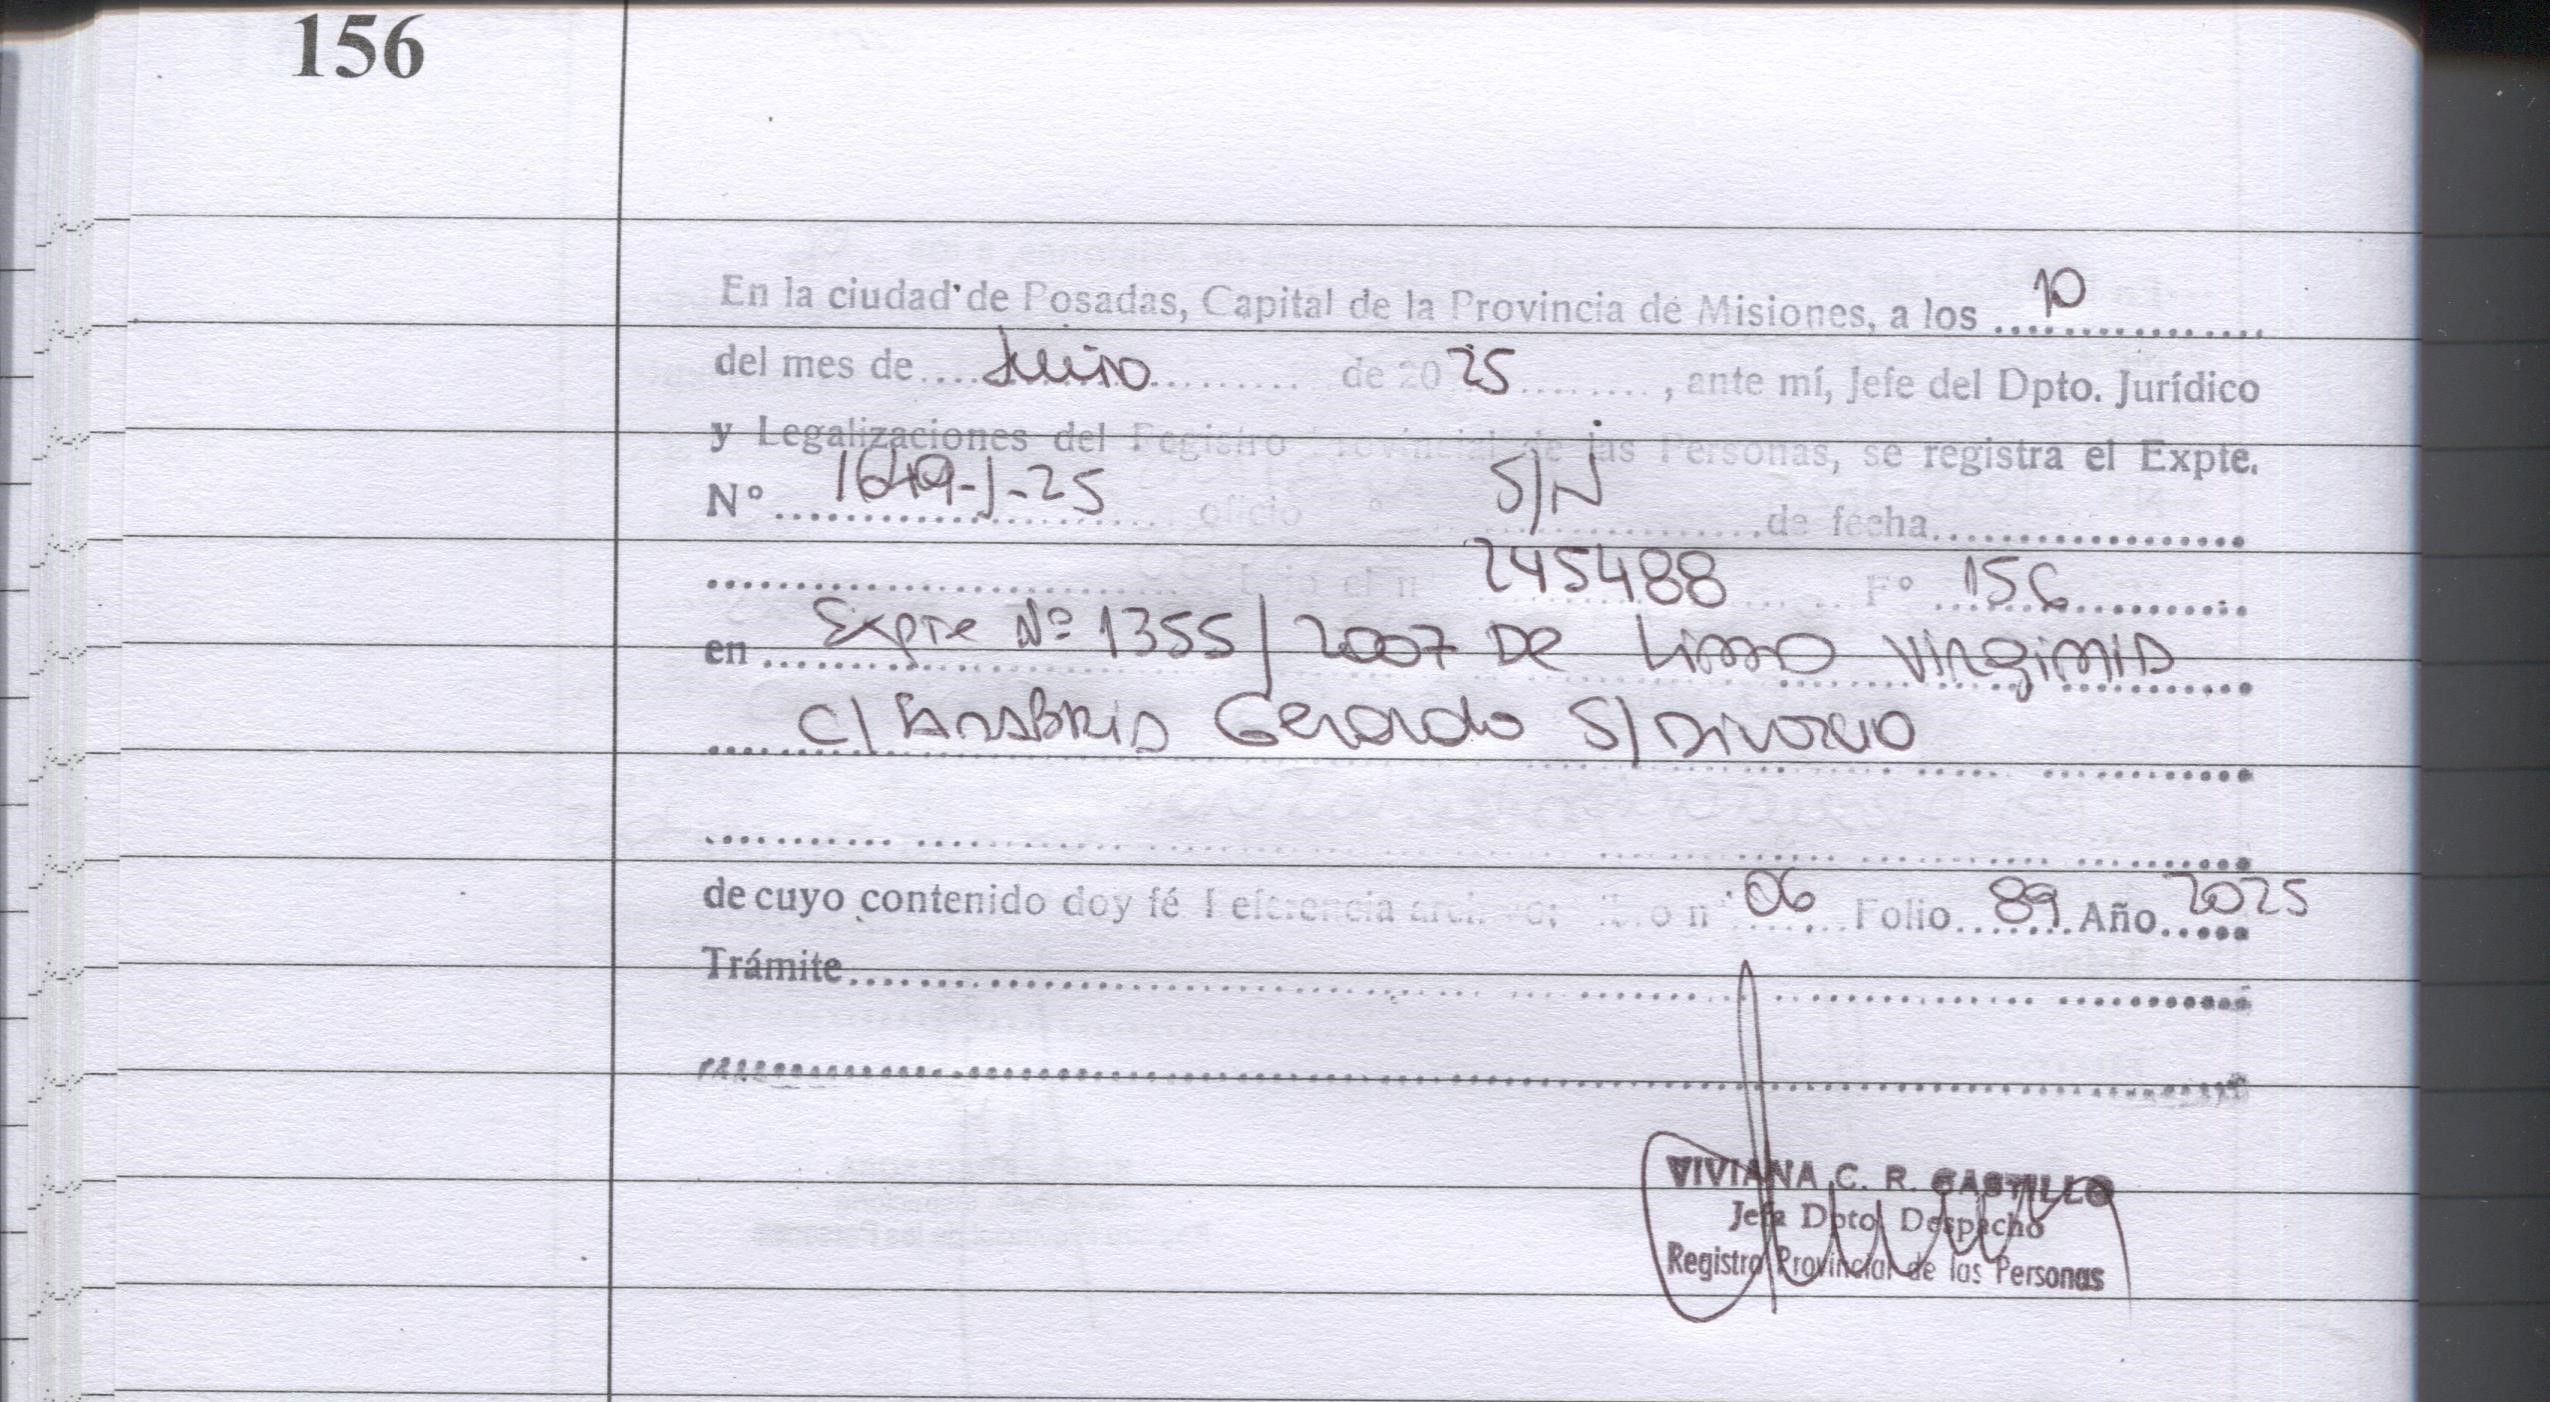 156
En la ciudad de Posadas, Capital de la Provincia de Misiones, a los 10
del mes de Junio de 2025, ante mí, Jefe del Dpto. Jurídico
y Legalizaciones del Registro Provincial de las Personas, se registra el Expte.
Nº 1649-J-25 oficio º S/N de fecha
245488 Fº 156
en Expte Nº 1355/2007 De Virginia
C/ Sanabria Gerardo S/ Divorcio
de cuyo contenido doy fé Referencia archivo: libro nº 06 Folio 89 Año 2025
Trámite
VIVIANA C. R. CASTILLO
Jefa Dpto. Despacho
Registro Provincial de las Personas